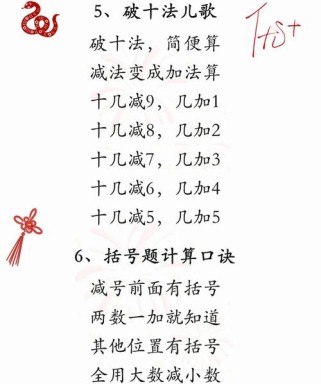 5、破十法儿歌
破十法，简便算
减法变成加法算
十几减9，几加1
十几减8，几加2
十几减7，几加3
十几减6，几加4
十几减5，几加5
6、括号题计算口诀
减号前面有括号
两数一加就知道
其他位置有括号
全用大数减小数